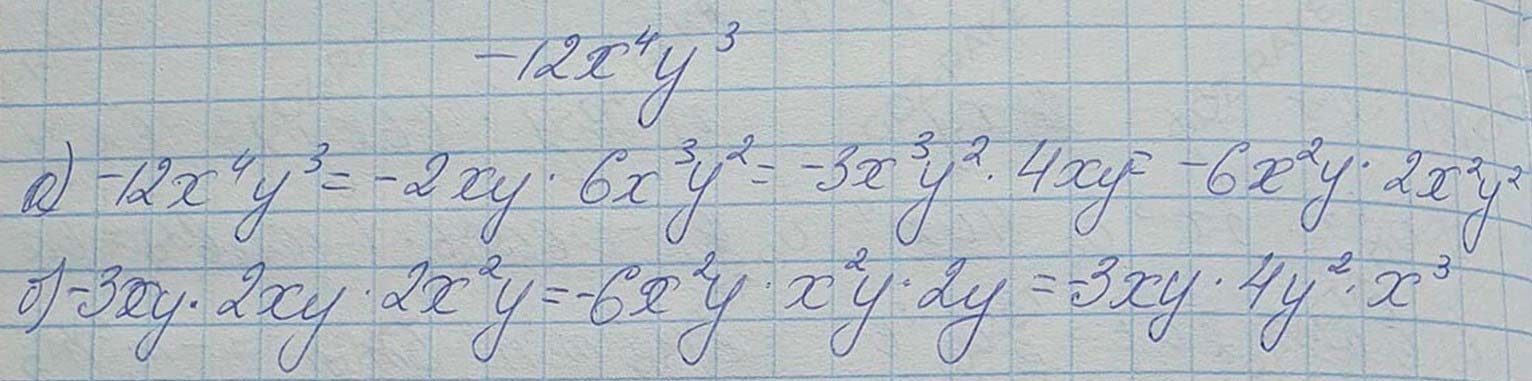 -12x⁴y³
а) -12x⁴y³ = -2xy · 6x³y² = -3x³y² · 4xy = -6x²y · 2x²y²
б) -3xy · 2xy · 2x²y = -6x²y · x²y · 2y = -3xy · 4y² · x³